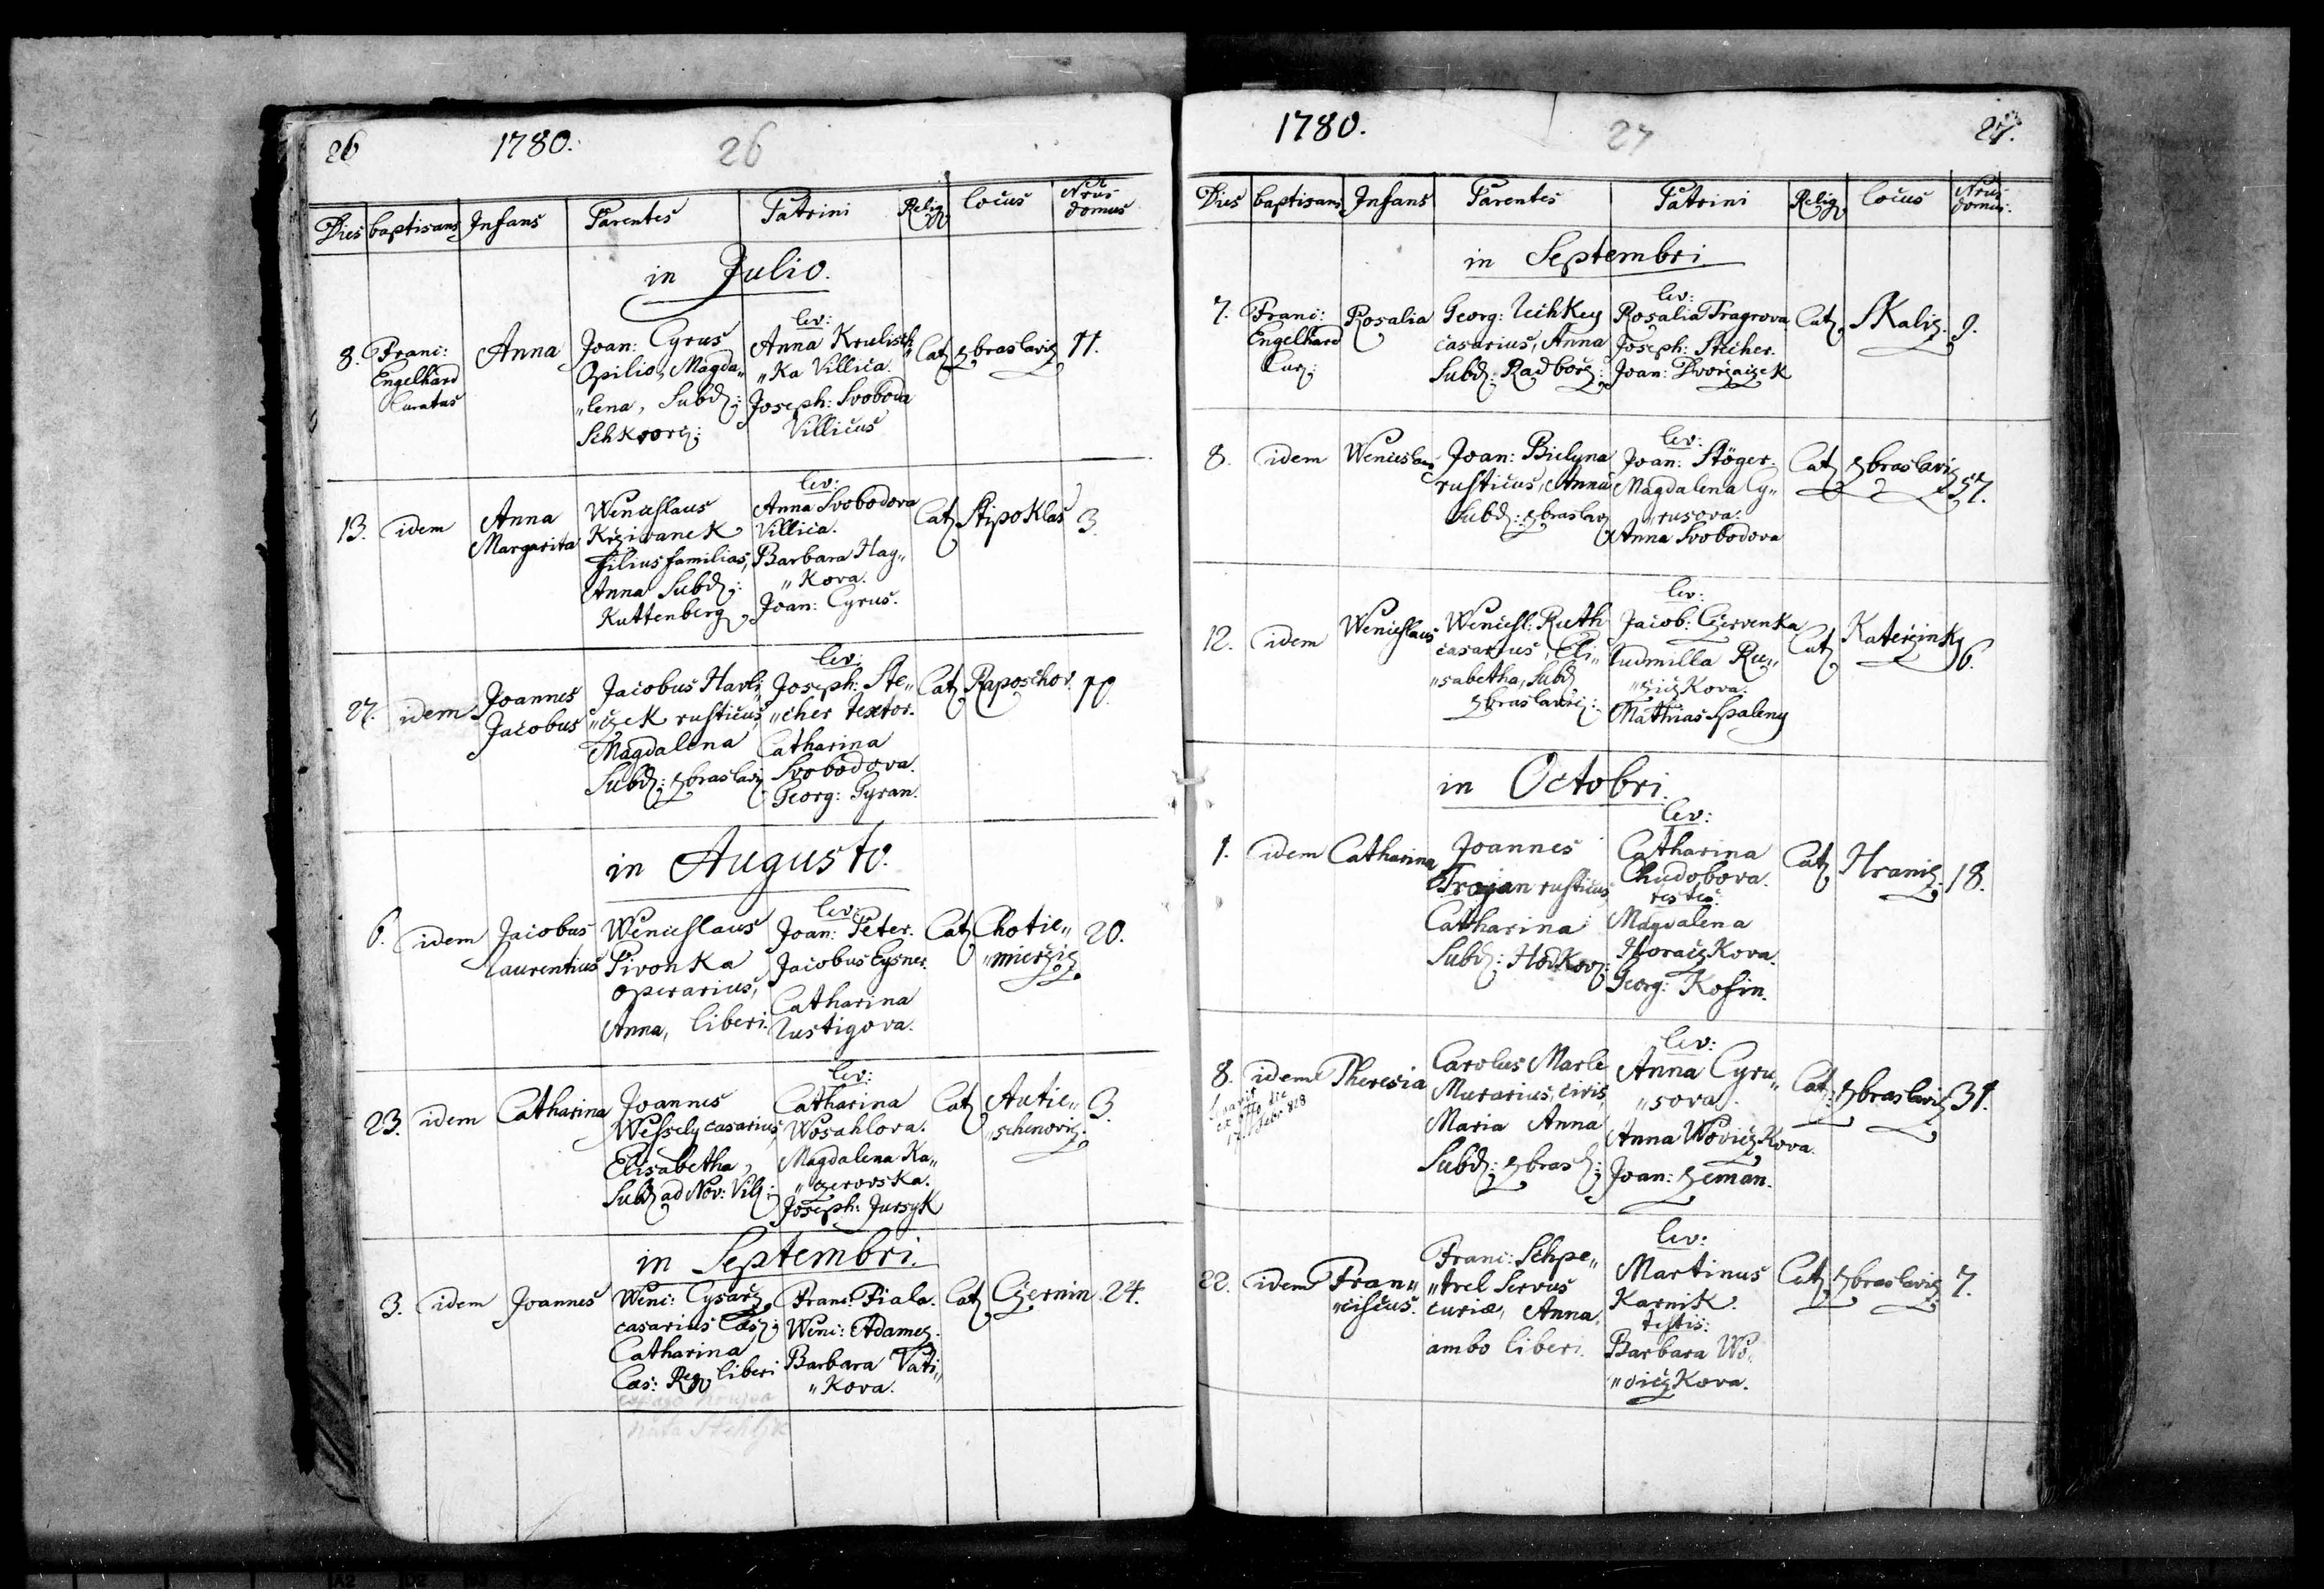 26 1780. 26
Dies baptisans Infans Parentes Patrini Relig locus Nrus
domus
in Julio.
8. Franc: Engelhard Curatus
Anna
Joan: Cyrus
Opilio, Magda„
„lena, Subd:
Schkvorc:
lev:
Anna Krulisch„
„Ka Villica.
Joseph: Svoboda
Villicus
Cat Zbraslaviz 11.
13. idem
Anna
Margarita
Wenceslaus
Krziwanek
filius familias,
Anna Subd:
Kuttenberg
lev:
Anna Svobodova
Villica.
Barbara Hag„
„Kova.
Joan: Cyrus.
Cat StipoKlas 3.
27. idem
Joannes
Jacobus
Jacobus Havli„
„czek rusticus
Magdalena
Subd: Zbraslaviz
lev:
Joseph: Ste„
„cher textor.
Catharina
Svobodova.
Georg: Tyran.
Cat Raposchov. 10.
in Augusto.
6. idem
Jacobus
Laurentius
Wenceslaus
PivonKa
operarius,
Anna, liberi.
lev:
Joan: Peter.
Jacobus Eysner.
Catharina
Lustigova.
Cat Chotie„
„mierziz 20.
23. idem Catharina
Joannes
Wessely casarius,
Elisabetha,
Subd ad Nov: Vil:
lev:
Catharina
Wosahlova.
Magdalena Ka„
„czerovsKa.
Joseph: Jursyk
Cat Autie„
„schinoviz 3.
in Septembri.
3. idem Joannes
Wenc: Cysarz
casarius Cas:
Catharina
Cas: Reg liberi
nata Stehljk
Franc: Fiala.
Wenc: Adamez.
Barbara Vati„
„Kova.
Cat Czernin 24.
1780. 27 27.
Dies baptisans Infans Parentes Patrini Relig locus Nrus
domus.
in Septembri
7. Franc:
Engelhard
Cur:
Rosalia
Georg:
casarius, Anna
Subd: Radborz:
lev:
Rosalia Tragrova
Joseph: Stecher.
Joan: DvorzaczeK
Cat SKaliz. 9.
8. idem Wenceslaus
Joan: Bielyna
rusticus, Anna
Subd: Zbraslaviz
lev:
Joan: Stöger.
Magdalena Cy„
„rusova.
Anna Svobodova
Cat Zbraslaviz 57.
12. idem Wenceslaus
Wencesl: Ruth
casarius, Eli„
„sabetha, Subd
Zbraslaviz:
lev:
Jacob: CzervenKa
Ludmilla Ru„
„zicz Kova.
Mathias Spaleny
Cat KaterzinKy 6.
in Octobri.
1. idem Catharina
Joannes
Trojan rusticus,
Catharina
Subd: HodKov:
lev:
Catharina
Chudobova.
testes:
Magdalena
HoraczKova.
Georg: Kosin.
Cat Hraniz. 18.
8. idem Theresia
Carolus Marle
Murarius, civis,
Maria Anna
Subd: Zbrasl:
lev:
Anna Cyru„
„sova.
Anna WoviczKova.
Joan: Zeman.
Cat: Zbraslaviz 31.
22. idem
Fran„
„ciscus.
Franc: Schpe„
„trel Servus
curiæ, Anna,
ambo liberi.
lev:
Martinus
Karnik.
testis:
Barbara Wo„
„viczKova.
Cat Zbraslaviz 7.